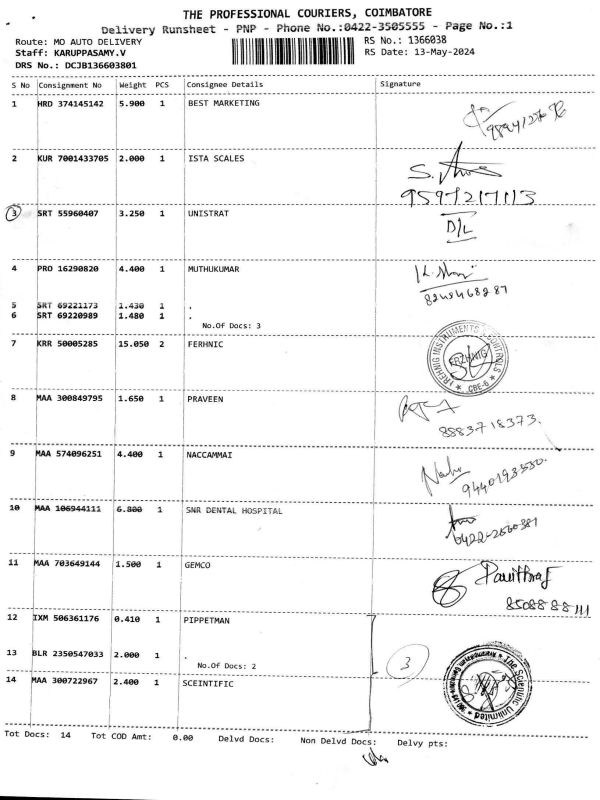 THE PROFESSIONAL COURIERS, COIMBATORE
Delivery Runsheet - PNP - Phone No.:0422-3505555 - Page No.:1
Route: MO AUTO DELIVERY
Staff: KARUPPASAMY.V
DRS No.: DCJB136603801
RS No.: 1366038
RS Date: 13-May-2024
S No Consignment No Weight PCS Consignee Details Signature
1 HRD 374145142 5.900 1 BEST MARKETING
2 KUR 7001433705 2.000 1 ISTA SCALES
9597217113
3 SRT 55960407 3.250 1 UNISTRAT
D/L
4 PRO 16290820 4.400 1 MUTHUKUMAR
5 SRT 69221173 1.430 1 .
6 SRT 69220989 1.480 1 .
No.Of Docs: 3
7 KRR 50005285 15.050 2 FERHNIC
INSTRUMENTS & CONTROLS
CBE-6
8 MAA 300849795 1.650 1 PRAVEEN
8883718373.
9 MAA 574096251 4.400 1 NACCAMMAI
9440193530.
10 MAA 106944111 6.800 1 SNR DENTAL HOSPITAL
11 MAA 703649144 1.500 1 GEMCO
8508888111
12 IXM 506361176 0.410 1 PIPPETMAN
13 BLR 2350547033 2.000 1 .
No.Of Docs: 2
3
The Scientific Unlimited
14 MAA 300722967 2.400 1 SCEINTIFIC
Tot Docs: 14 Tot COD Amt: 0.00 Delvd Docs: Non Delvd Docs: Delvy pts: